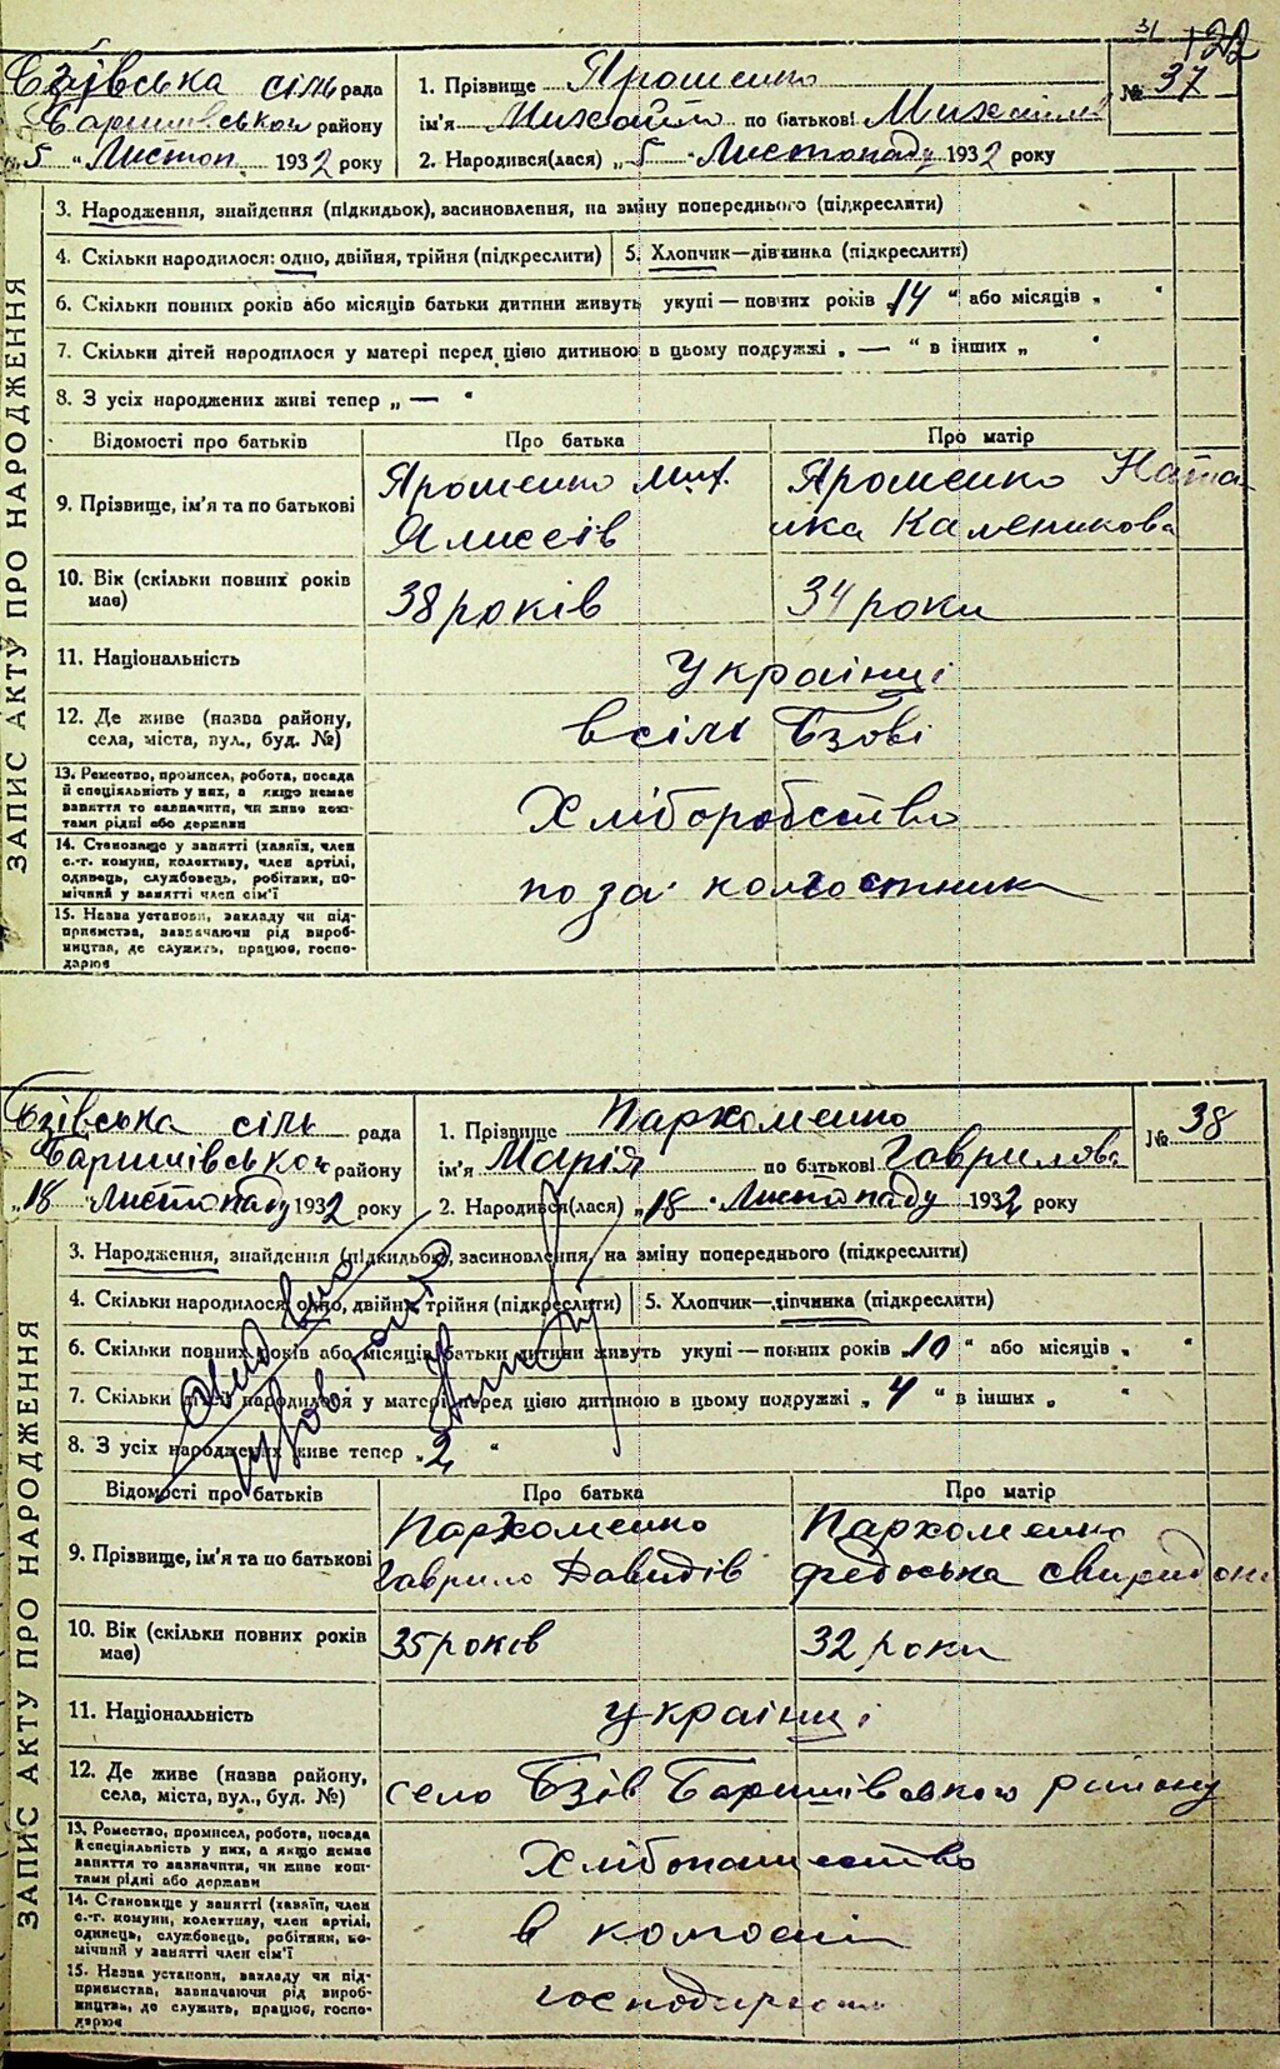 31 122
Бзівська сіль рада
Баришівськой району
„5 “ Листоп 1932 року
1. Прізвище Ярошенко
ім'я Михайло по батькові Михайлів
№ 37
2. Народився(лася) „5 “ Листопаду 1932 року
ЗАПИС АКТУ ПРО НАРОДЖЕННЯ
3. Народження, знайдення (підкидьок), засиновлення, на зміну попереднього (підкреслити)
4. Скільки народилося: одно, двійня, трійня (підкреслити) 5. Хлопчик—дівчинка (підкреслити)
6. Скільки повних років або місяців батьки дитини живуть укупі — повних років „14 “ або місяців „ “
7. Скільки дітей народилося у матері перед цією дитиною в цьому подружжі „ — “ в інших „ “
8. З усіх народжених живі тепер „ — “
Відомості про батьків Про батька Про матір
9. Прізвище, ім'я та по батькові
Ярошенко Мих.
Ялисеів
Ярошенко Ната-
лка Каленикова
10. Вік (скільки повних років
має)
38 років 34 роки
11. Національність Українці
12. Де живе (назва району,
села, міста, вул., буд. №)
в сілі Бзові
13. Ремество, промисел, робота, посада
й спеціяльність у них, а якщо немає
заняття то зазначити, чи живе кош-
тами рідні або держави
Хліборобство
14. Становище у занятті (хазяїн, член
с.-г. комуни, колективу, член артілі,
одинець, службовець, робітник, по-
мічний у занятті член сім'ї
поза колгостника
15. Назва установи, закладу чи під-
приємства, зазначаючи рід вироб-
ництва, де служить, працює, госпо-
дарює
Бзівська сіль рада
Баришівськой району
„18 “ Листопаду 1932 року
1. Прізвище Пархоменко
ім'я Марія по батькові Гаврилова
№ 38
2. Народився(лася) „18 “ Листопаду 1932 року
ЗАПИС АКТУ ПРО НАРОДЖЕННЯ
3. Народження, знайдення (підкидьок), засиновлення, на зміну попереднього (підкреслити)
4. Скільки народилося: одно, двійня, трійня (підкреслити) 5. Хлопчик—дівчинка (підкреслити)
6. Скільки повних років або місяців батьки дитини живуть укупі — повних років „10 “ або місяців „ “
7. Скільки дітей народилося у матері перед цією дитиною в цьому подружжі „ 4 “ в інших „ “
8. З усіх народжених живе тепер „2 “
Відомості про батьків Про батька Про матір
9. Прізвище, ім'я та по батькові
Пархоменко
Гаврило Давидів
Пархоменко
Федоська Свиридон
10. Вік (скільки повних років
має)
35 років 32 роки
11. Національність українці
12. Де живе (назва району,
села, міста, вул., буд. №)
село Бзів Баришівського району
13. Ремество, промисел, робота, посада
й спеціяльність у них, а якщо немає
заняття то зазначити, чи живе кош-
тами рідні або держави
Хлібопашество
14. Становище у занятті (хазяїн, член
с.-г. комуни, колективу, член артілі,
одинець, службовець, робітник, по-
мічний у занятті член сім'ї
в
15. Назва установи, закладу чи під-
приємства, зазначаючи рід вироб-
ництва, де служить, працює, госпо-
дарює